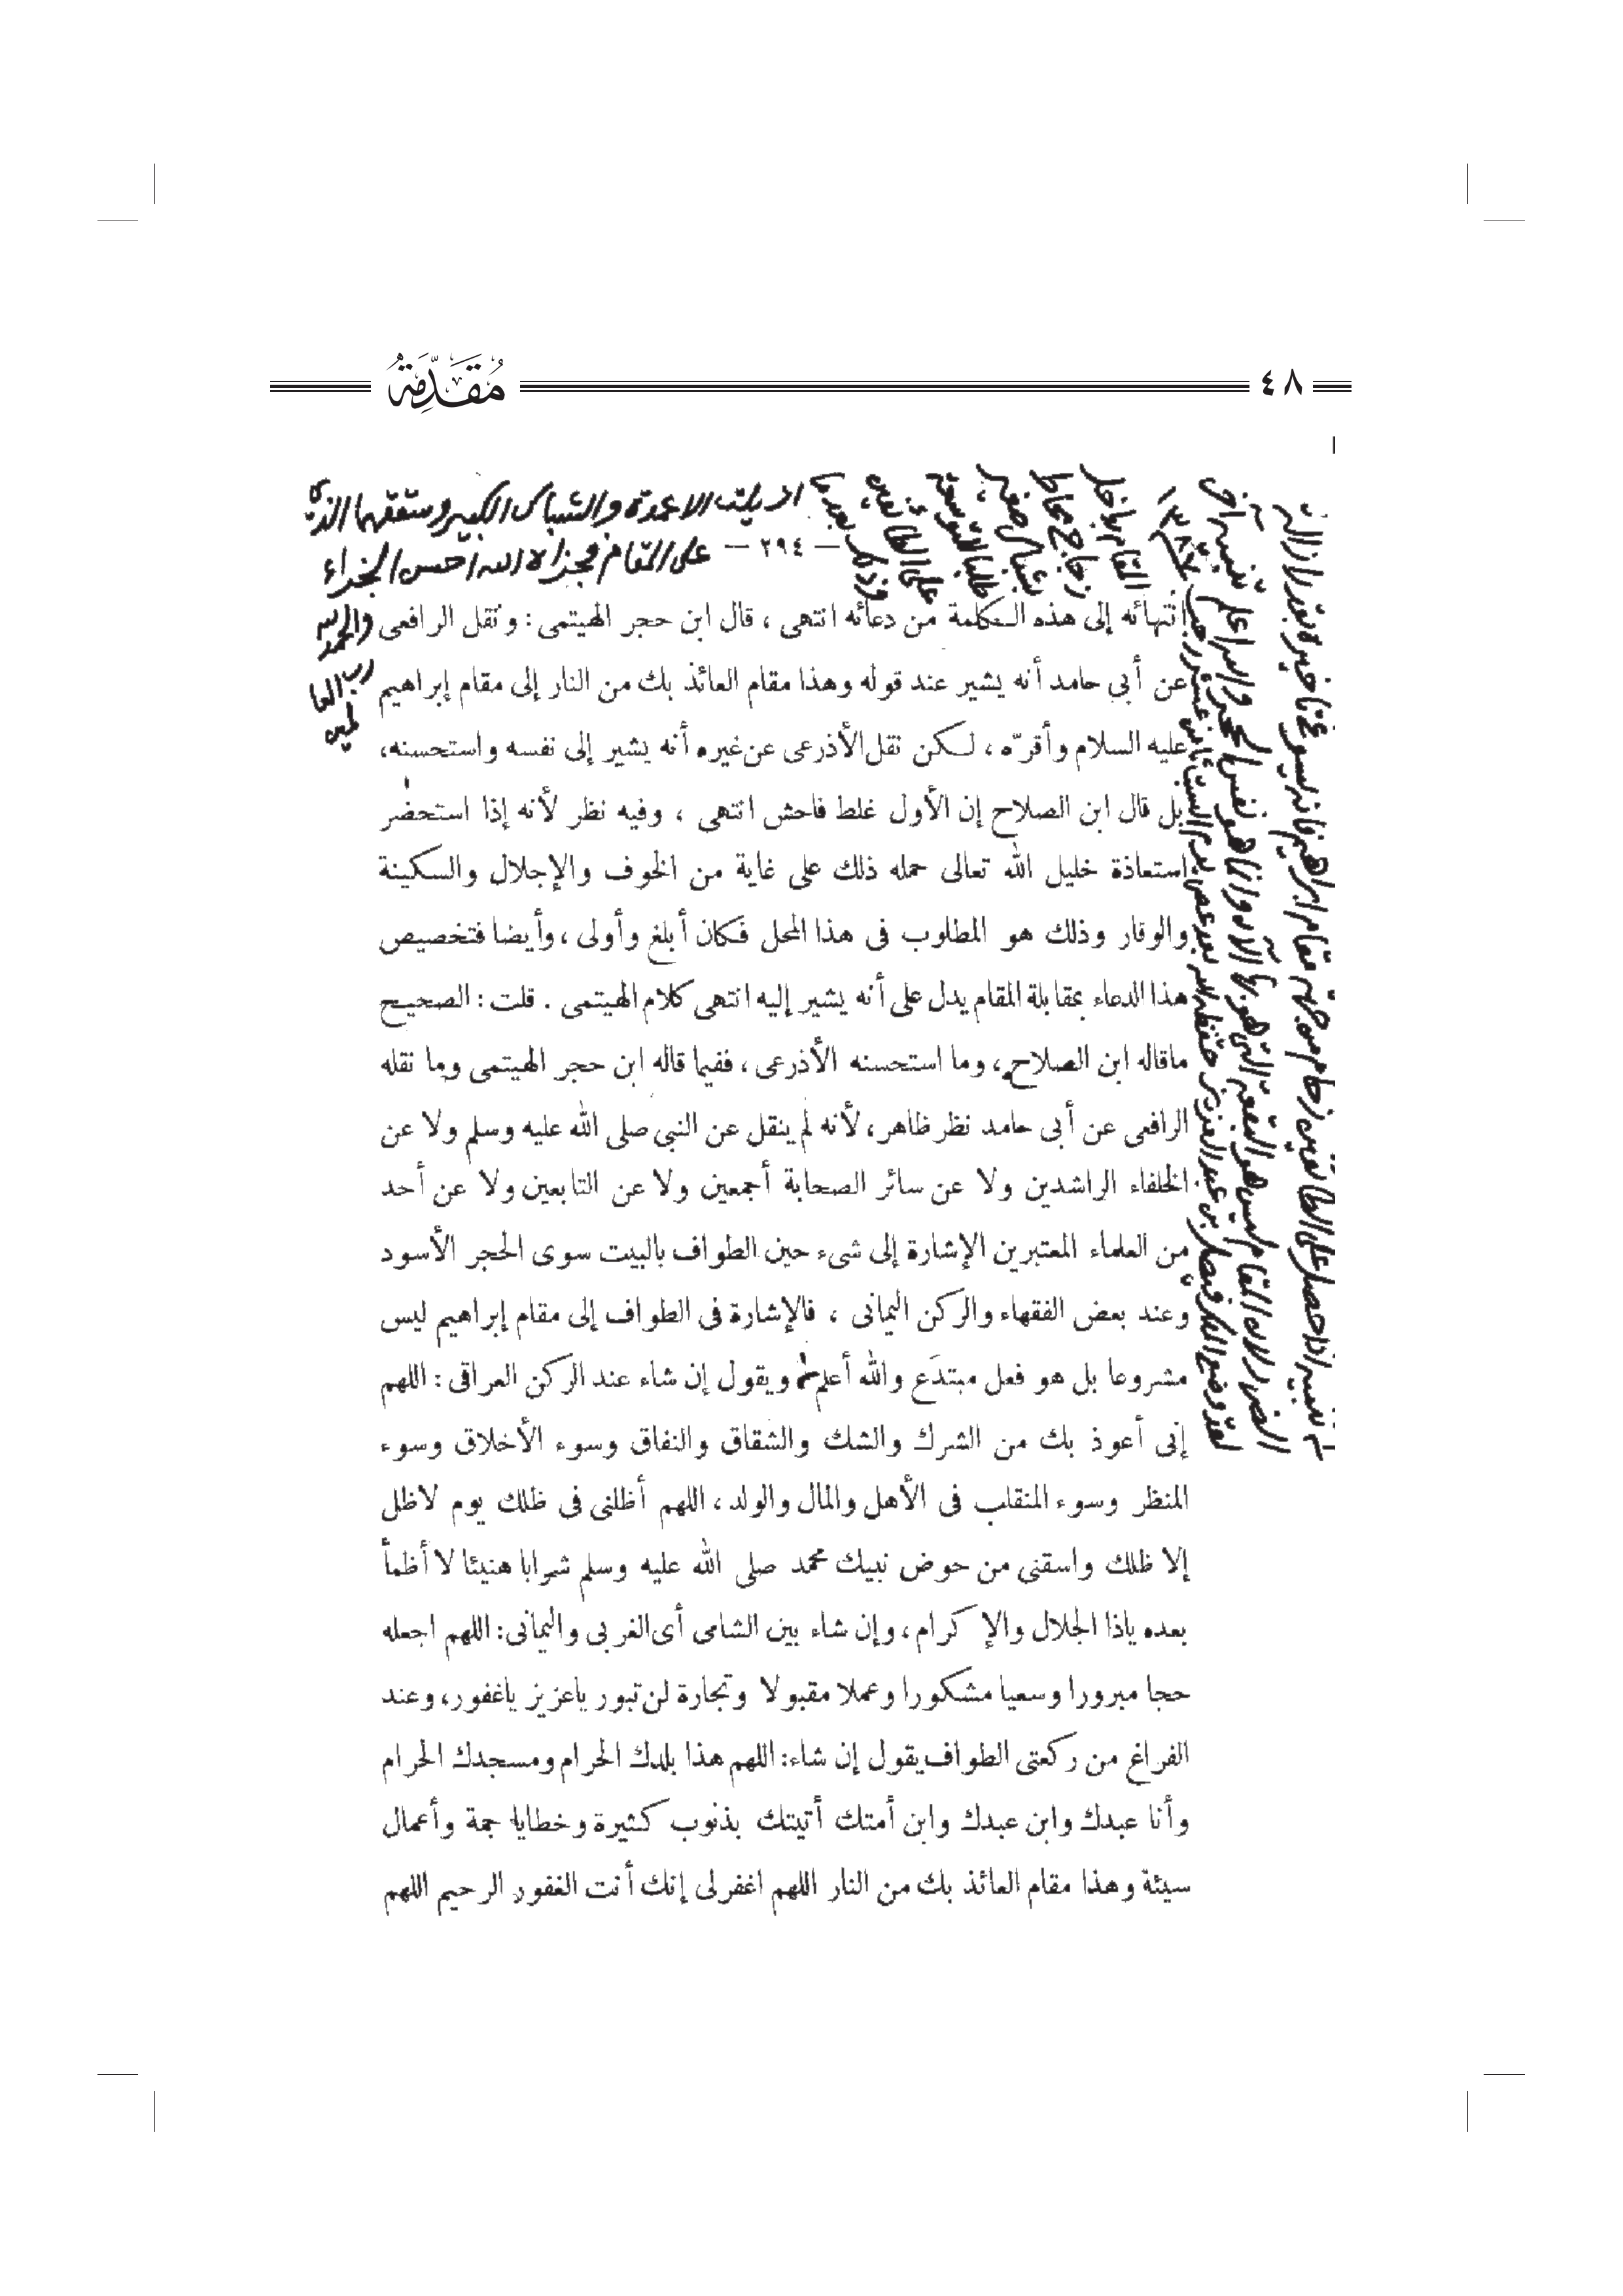 ٤٨
مُقَدِّمَة
أزيلت الأعمدة والشباك الكبير وسقفها الذي
على المقام فجزاه الله أحسن الجزاء
والحمد لله
رب العا
لمين
— ٢٩٤ —
انتهائه إلى هذه الكلمة من دعائه انتهى ، قال ابن حجر الهيتمى : ونقل الرافعى
عن أبي حامد أنه يشير عند قوله وهذا مقام العائذ بك من النار إلى مقام إبراهيم
عليه السلام وأقرّه ، لكن نقل الأذرعى عن غيره أنه يشير إلى نفسه واستحسنه،
بل قال ابن الصلاح إن الأول غلط فاحش انتهى ، وفيه نظر لأنه إذا استحضر
استعاذة خليل الله تعالى حمله ذلك على غاية من الخوف والإجلال والسكينة
والوقار وذلك هو المطلوب فى هذا المحل فكان أبلغ وأولى ، وأيضا فتخصيص
هذا الدعاء بمقابلة المقام يدل على أنه يشير إليه انتهى كلام الهيتمى . قلت : الصحيح
ماقاله ابن الصلاح، وما استحسنه الأذرعى ، ففيما قاله ابن حجر الهيتمى وما نقله
الرافعى عن أبى حامد نظر ظاهر، لأنه لم ينقل عن النبي صلى الله عليه وسلم ولا عن
الخلفاء الراشدين ولا عن سائر الصحابة أجمعين ولا عن التابعين ولا عن أحد
من العلماء المعتبرين الإشارة إلى شىء حين الطواف بالبيت سوى الحجر الأسود
وعند بعض الفقهاء والركن اليمانى ، فالإشارة فى الطواف إلى مقام إبراهيم ليس
مشروعا بل هو فعل مبتدَع والله أعلم ويقول إن شاء عند الركن العراقى : اللهم
إنى أعوذ بك من الشرك والشك والشقاق والنفاق وسوء الأخلاق وسوء
المنظر وسوء المنقلب فى الأهل والمال والولد ، اللهم أظلنى فى ظلك يوم لاظل
إلا ظلك واسقنى من حوض نبيك محمد صلى الله عليه وسلم شرابا هنيئا لا أظمأ
بعده ياذا الجلال والإكرام ، وإن شاء بين الشامى أى الغربى واليمانى: اللهم اجعله
حجا مبرورا وسعيا مشكورا وعملا مقبولا وتجارة لن تبور ياعزيز ياغفور، وعند
الفراغ من ركعتى الطواف يقول إن شاء: اللهم هذا بلدك الحرام ومسجدك الحرام
وأنا عبدك وابن عبدك وابن أمتك أتيتك بذنوب كثيرة وخطايا جمة وأعمال
سيئة وهذا مقام العائذ بك من النار اللهم اغفر لى إنك أنت الغفور الرحيم اللهم